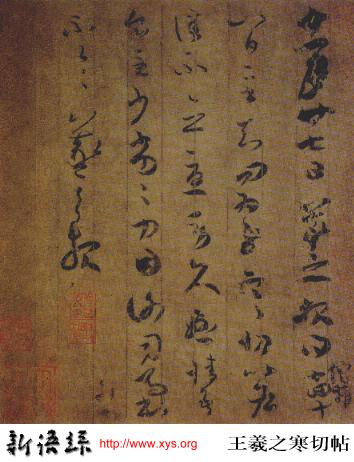 十一月廿七日羲之報得十四十
八日二書知問為慰寒切比各
佳不念憂勞久懸情吾
食甚少劣劣力因謝司馬書
不一一羲之報
新語絲 http://www.xys.org 王羲之寒切帖